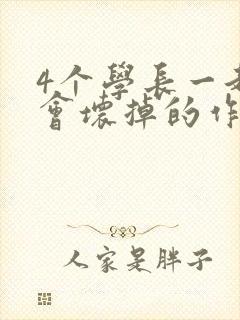 4个學長一
會壞掉的作
人家是胖子